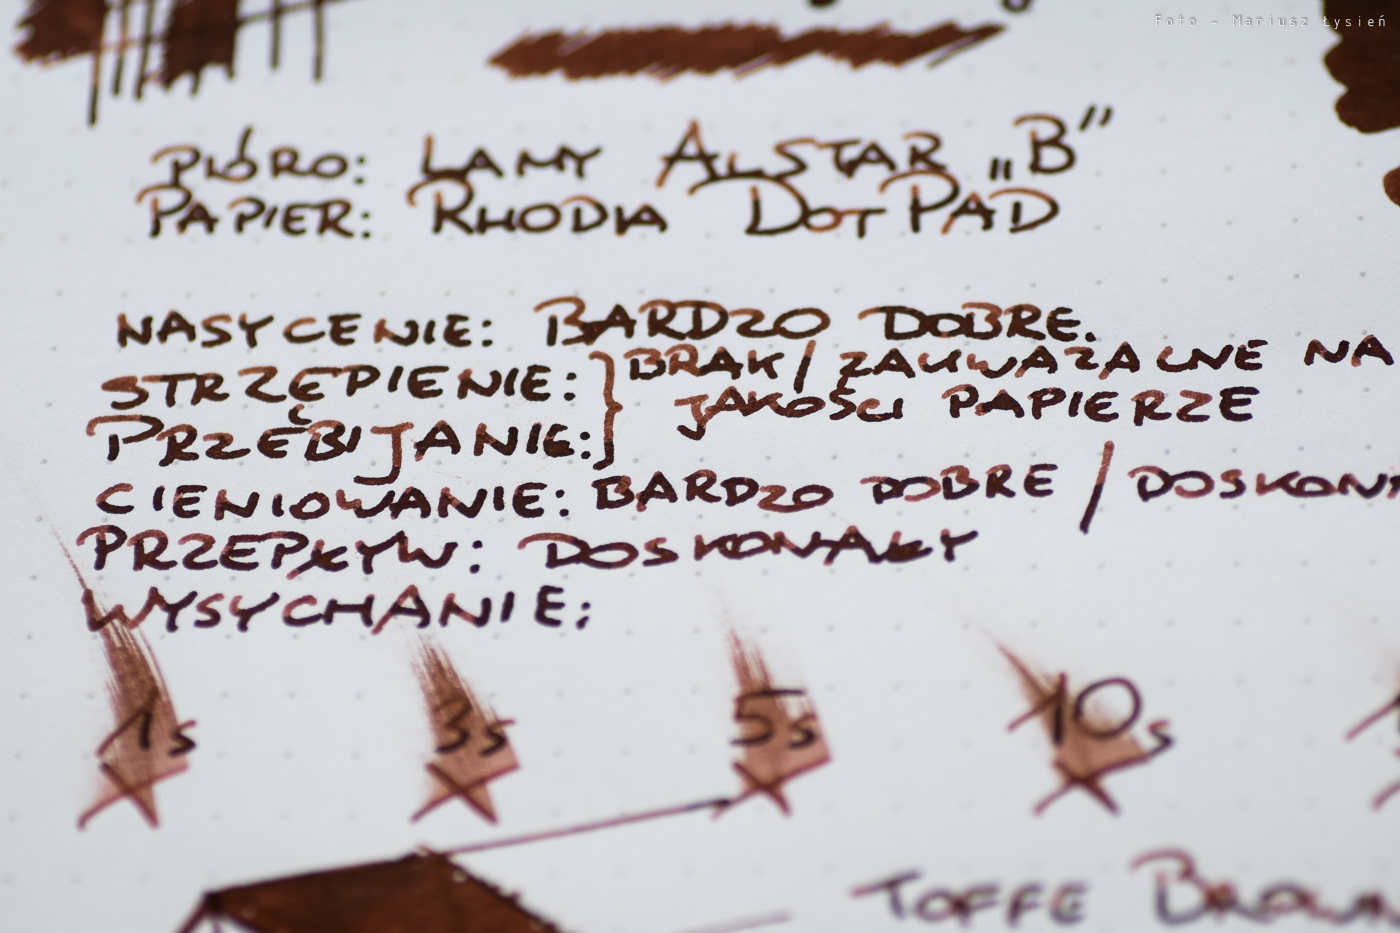 Foto - Mariusz Łysień
PIÓRO: LAMY ALSTAR „B”
PAPIER: RHODIA DOT PAD
NASYCENIE: BARDZO DOBRE.
STRZĘPIENIE: } BRAK / ZAUWAZALNE NA
JAKOŚCI PAPIERZE
PRZEBIJANIE:
CIENIOWANIE: BARDZO DOBRE / DOSKONA
PRZEPŁYW: DOSKONAŁY
WYSYCHANIE:
1s 3s 5s 10s
TOFFE BROWN